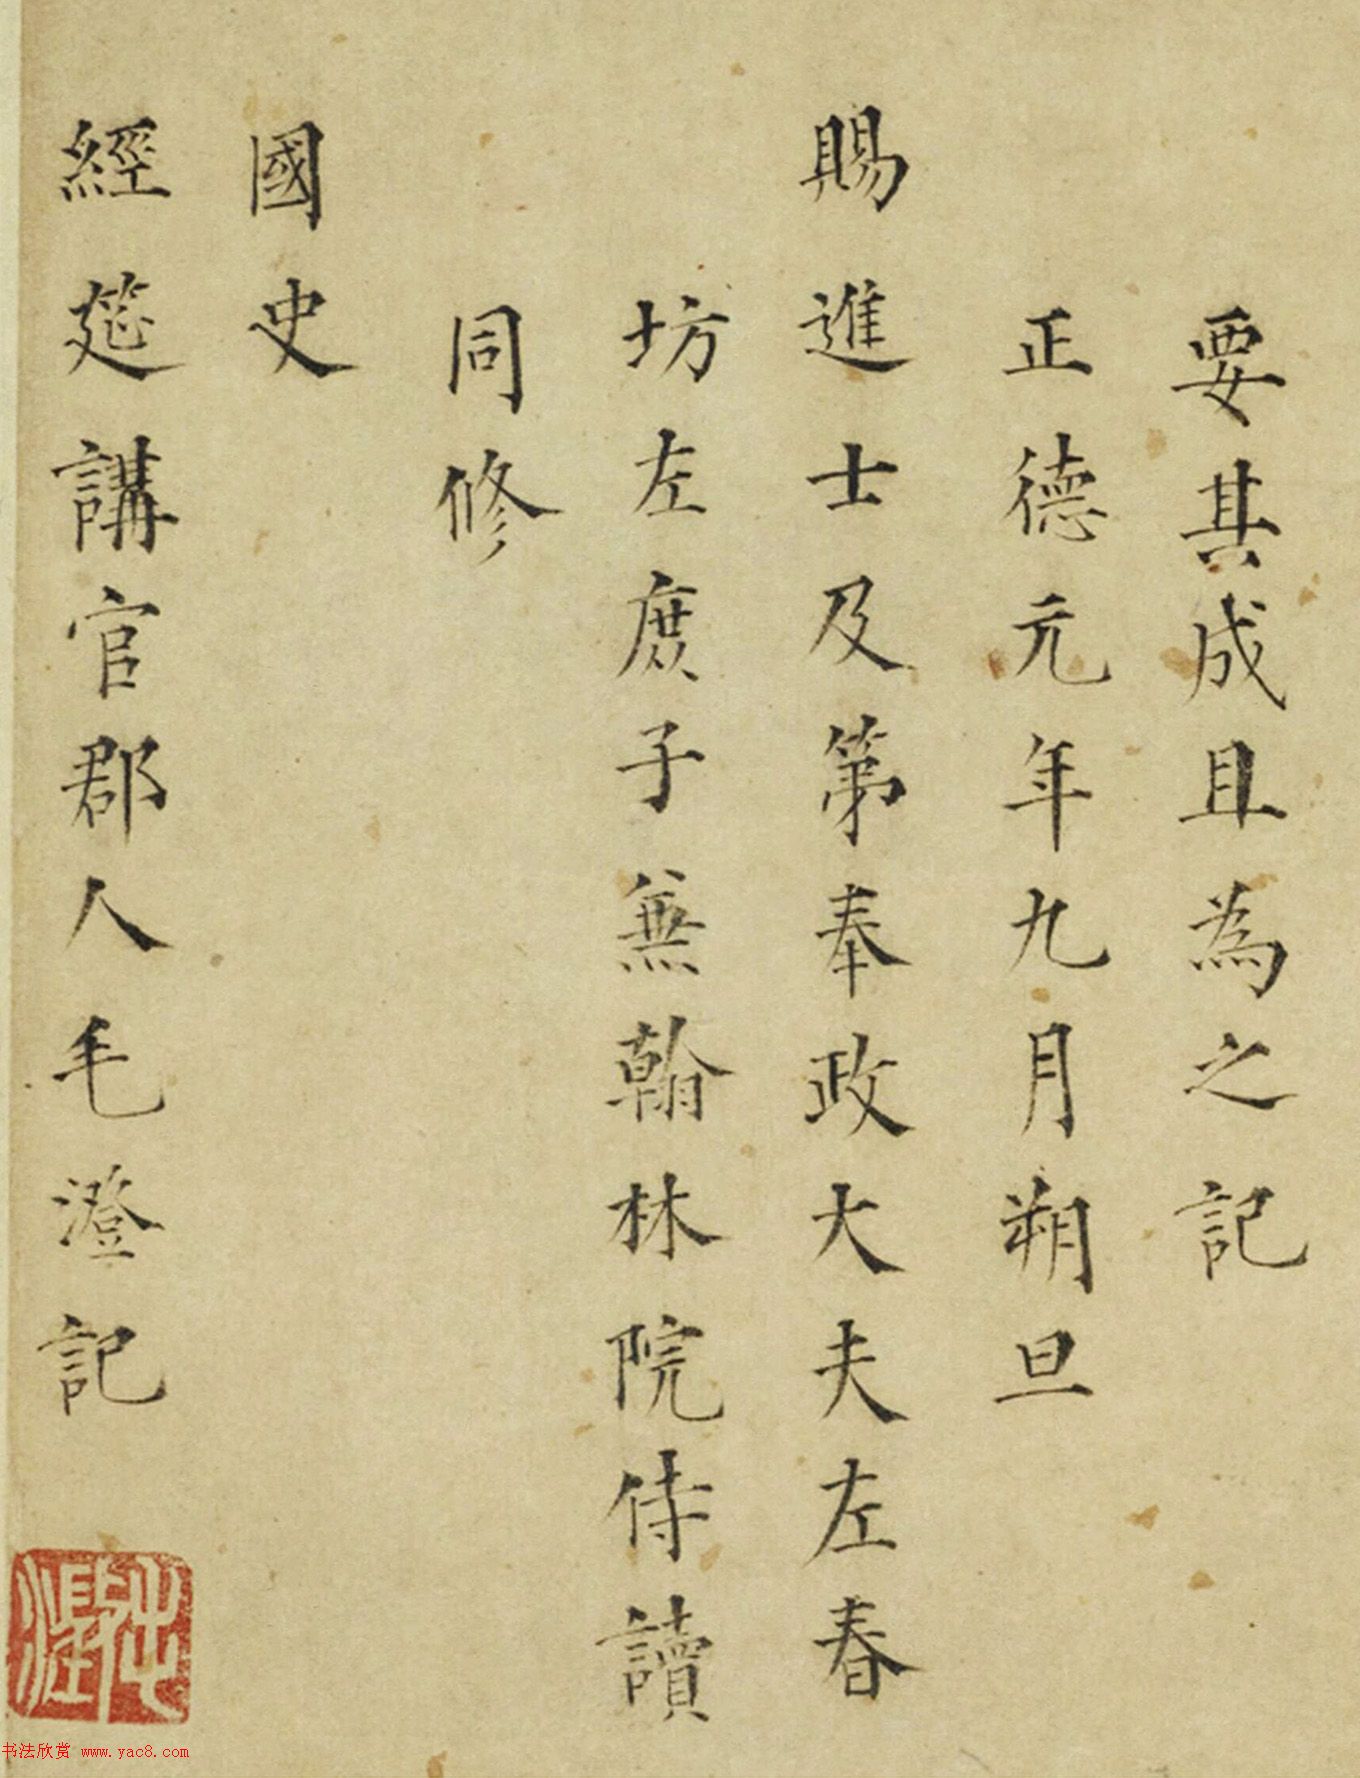 要其成且為之記
正德元年九月朔旦
賜進士及第奉政大夫左春
坊左庶子兼翰林院侍讀
同修
國史
經筵講官郡人毛澄記
书法欣赏 www.yac8.com